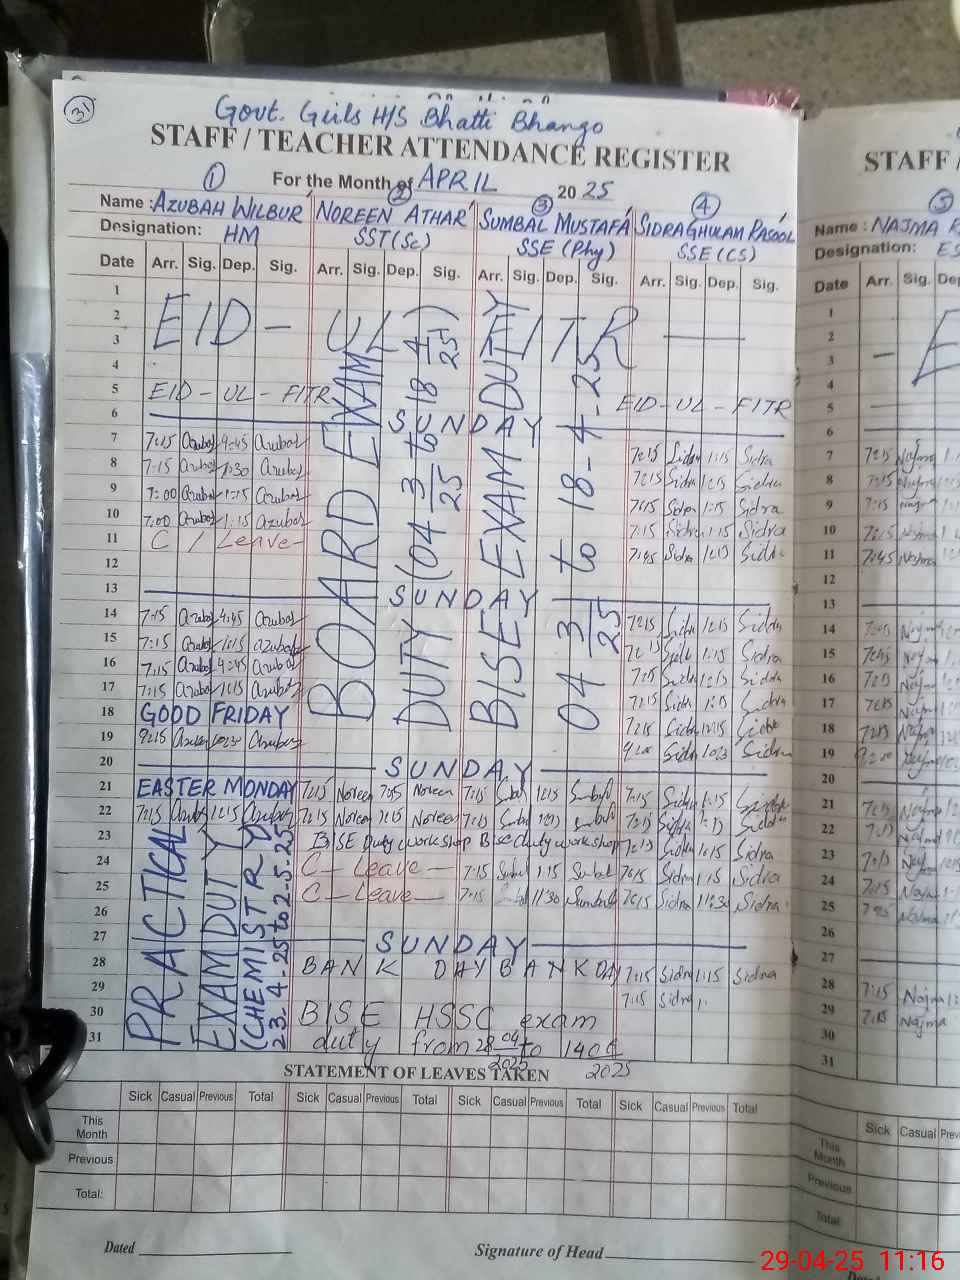 31
Govt. Girls H/S Bhatti Bhango
STAFF / TEACHER ATTENDANCE REGISTER
For the Month of APRIL 2025
1 2 3 4
Name : AZUBAH WILBUR NOREEN ATHAR SUMBAL MUSTAFA SIDRA GHULAM RASOOL
Designation: HM SST (Sc) SSE (Phy) SSE (CS)
Date Arr. Sig. Dep. Sig. Arr. Sig. Dep. Sig. Arr. Sig. Dep. Sig. Arr. Sig. Dep. Sig.
1
2 EID - UL - FITR
3
4
5 EID - UL - FITR EID - UL - FITR
6 SUNDAY
BOARD EXAM
DUTY (04 3/25 to 18 4/25)
BISE EXAM DUTY
04 3/25 to 18-4-25
7 7:15 Azubah 4:45 Azubah 7:15 Sidra 1:15 Sidra
8 7:15 Azubah 1:30 Azubah 7:15 Sidra 1:15 Sidra
9 7:00 Azubah 1:15 Azubah 7:15 Sidra 1:15 Sidra
10 7:00 Azubah 1:15 Azubah 7:15 Sidra 1:15 Sidra
11 C / Leave - 7:45 Sidra Sidra
12
13 SUNDAY
14 7:15 Azubah 4:45 Azubah 7:15 Sidra 12:15 Sidra
15 7:15 Azubah 1:15 Azubah 1:15 Sidra
16 7:15 Azubah 4:45 Azubah Sidra
17 7:15 Azubah 1:15 Azubah 7:15 Sidra Sidra
18 GOOD FRIDAY 7:15 Sidra 12:15 Sidra
19 9:15 Azubah Azubah 9:00 Sidra Sidra
20 SUNDAY
21 EASTER MONDAY 7:15 Noreen Noreen 7:15 Sumbal 1:15 Sumbal 7:15 Sidra 1:15 Sidra
22 7:15 Azubah 1:15 Azubah 7:15 Noreen 1:15 Noreen Sumbal Sumbal Sidra Sidra
23 BISE Duty workshop Bise duty workshop Sidra 1:15 Sidra
24 C - Leave - 7:15 Sumbal 1:15 Sumbal 7:15 Sidra 1:15 Sidra
25 C - Leave - 7:15 Sumbal 11:30 Sumbal 7:15 Sidra 11:30 Sidra
26
27 SUNDAY
28 BANK DAY BANK DAY 7:15 Sidra 1:15 Sidra
29 7:15 Sidra 1:
30 BISE HSSC exam
31 duty from 28 04/2025 to 14 05/2025
PRACTICAL
EXAM DUTY
(CHEMISTRY)
23-4-25 to 2-5-25
STATEMENT OF LEAVES TAKEN
Sick Casual Previous Total Sick Casual Previous Total Sick Casual Previous Total Sick Casual Previous Total
This Month
Previous
Total:
Dated
Signature of Head
STAFF /
5
Name : NAJMA
Designation: ES
Date Arr. Sig. Dep
1
2
3
4
5
6
7 7:15 Najma
8 7:15 Najma
9 7:15 Najma
10 7:15 Najma
11 7:45 Najma
12
13
14 Najma
15 Najma
16 Najma
17 7:15 Najma
18 Najma
19 Najma
20
21 Najma
22 Najma
23 Najma
24 7:15 Najma
25 Najma
26
27
28 7:15 Najma
29 7:15 Najma
30
31
Sick Casual
This Month
Previous
Total:
29-04-25 11:16